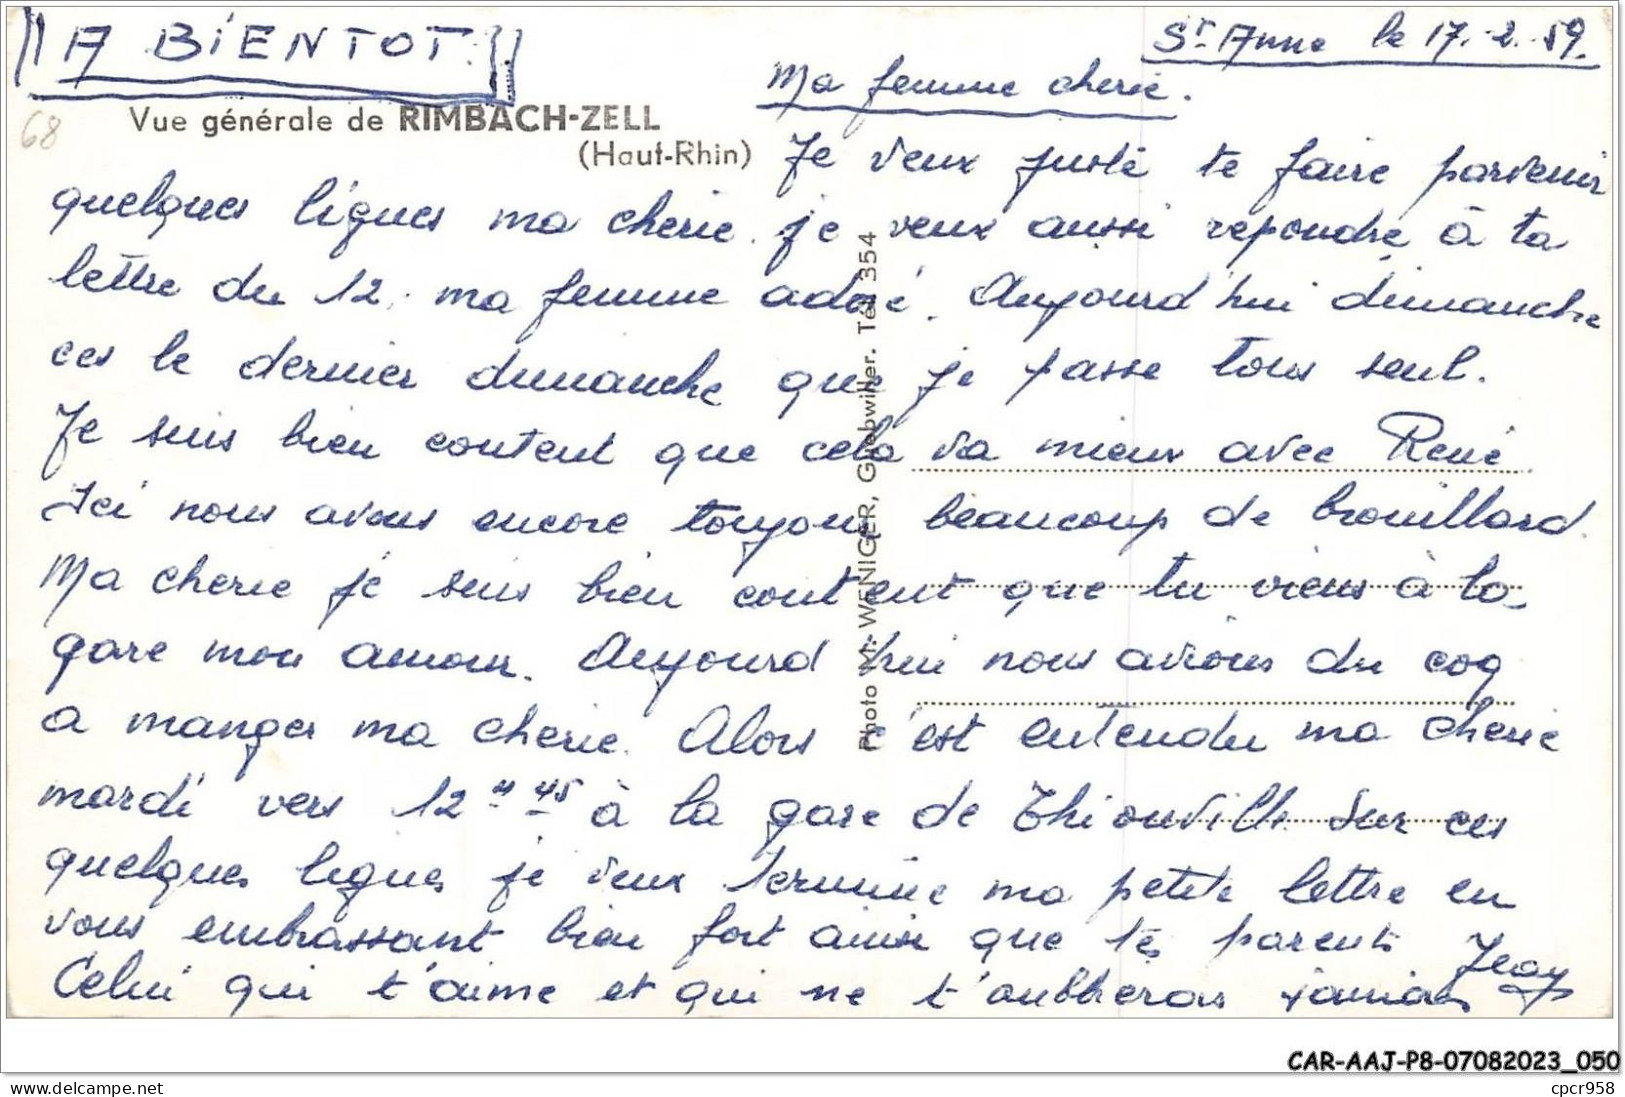 A BiENTOT
St Anne le 17.2.59.
Ma femme cherie.
68
Vue générale de RIMBACH-ZELL
(Haut-Rhin)
Je veux juste te faire parvenir
quelques lignes ma cherie. je veux aussi repondre à ta
lettre du 12. ma femme adoré. Aujourd'hui dimanche
ces le dernier dimanche que je passe tous seul.
Je suis bien content que cela va mieux avec René.
Ici nous avons encore toujours beaucoup de brouillard.
Ma cherie je suis bien content que tu viens à la
gare mon amour. Aujourd'hui nous avions du coq
a manger ma cherie. Alors c'est entendu ma cherie
mardi vers 12 H 45 à la gare de Thionville. Sur ces
quelques lignes je veux terminé ma petite lettre en
vous embrassant bien fort ainsi que tes parents
Celui qui t'aime et qui ne t'oublieras jamais
Photo M. WENIGER, Guebwiller. Tél. 354
CAR-AAJ-P8-07082023_050
www.delcampe.net
cpcr958